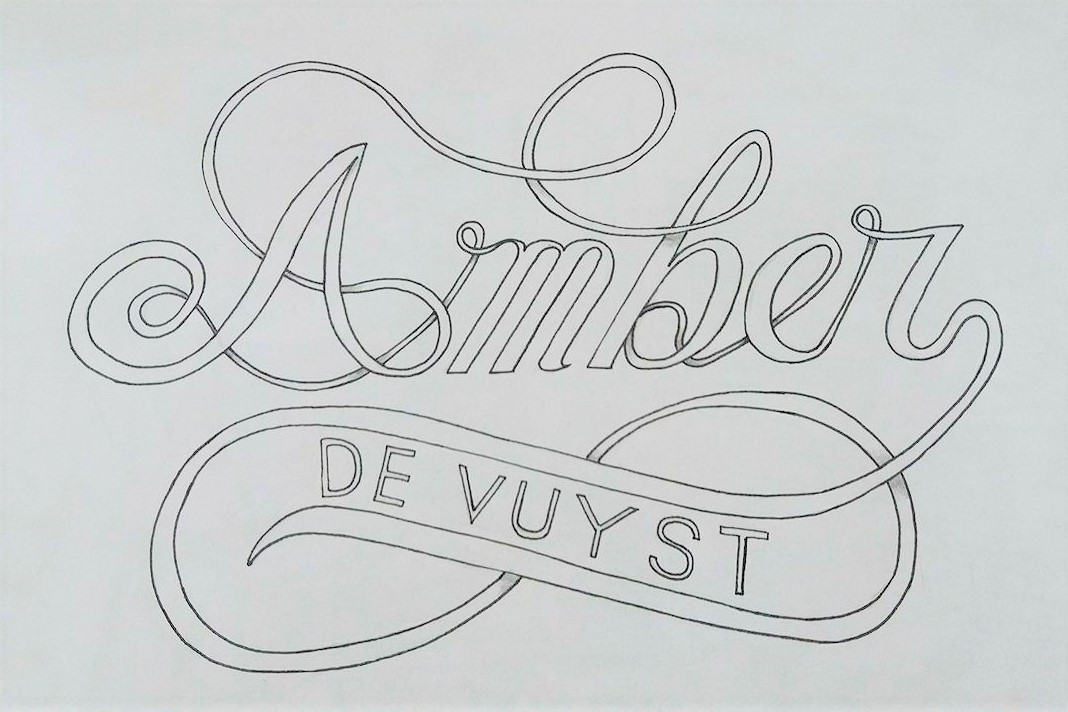 Amber
DE VUYST